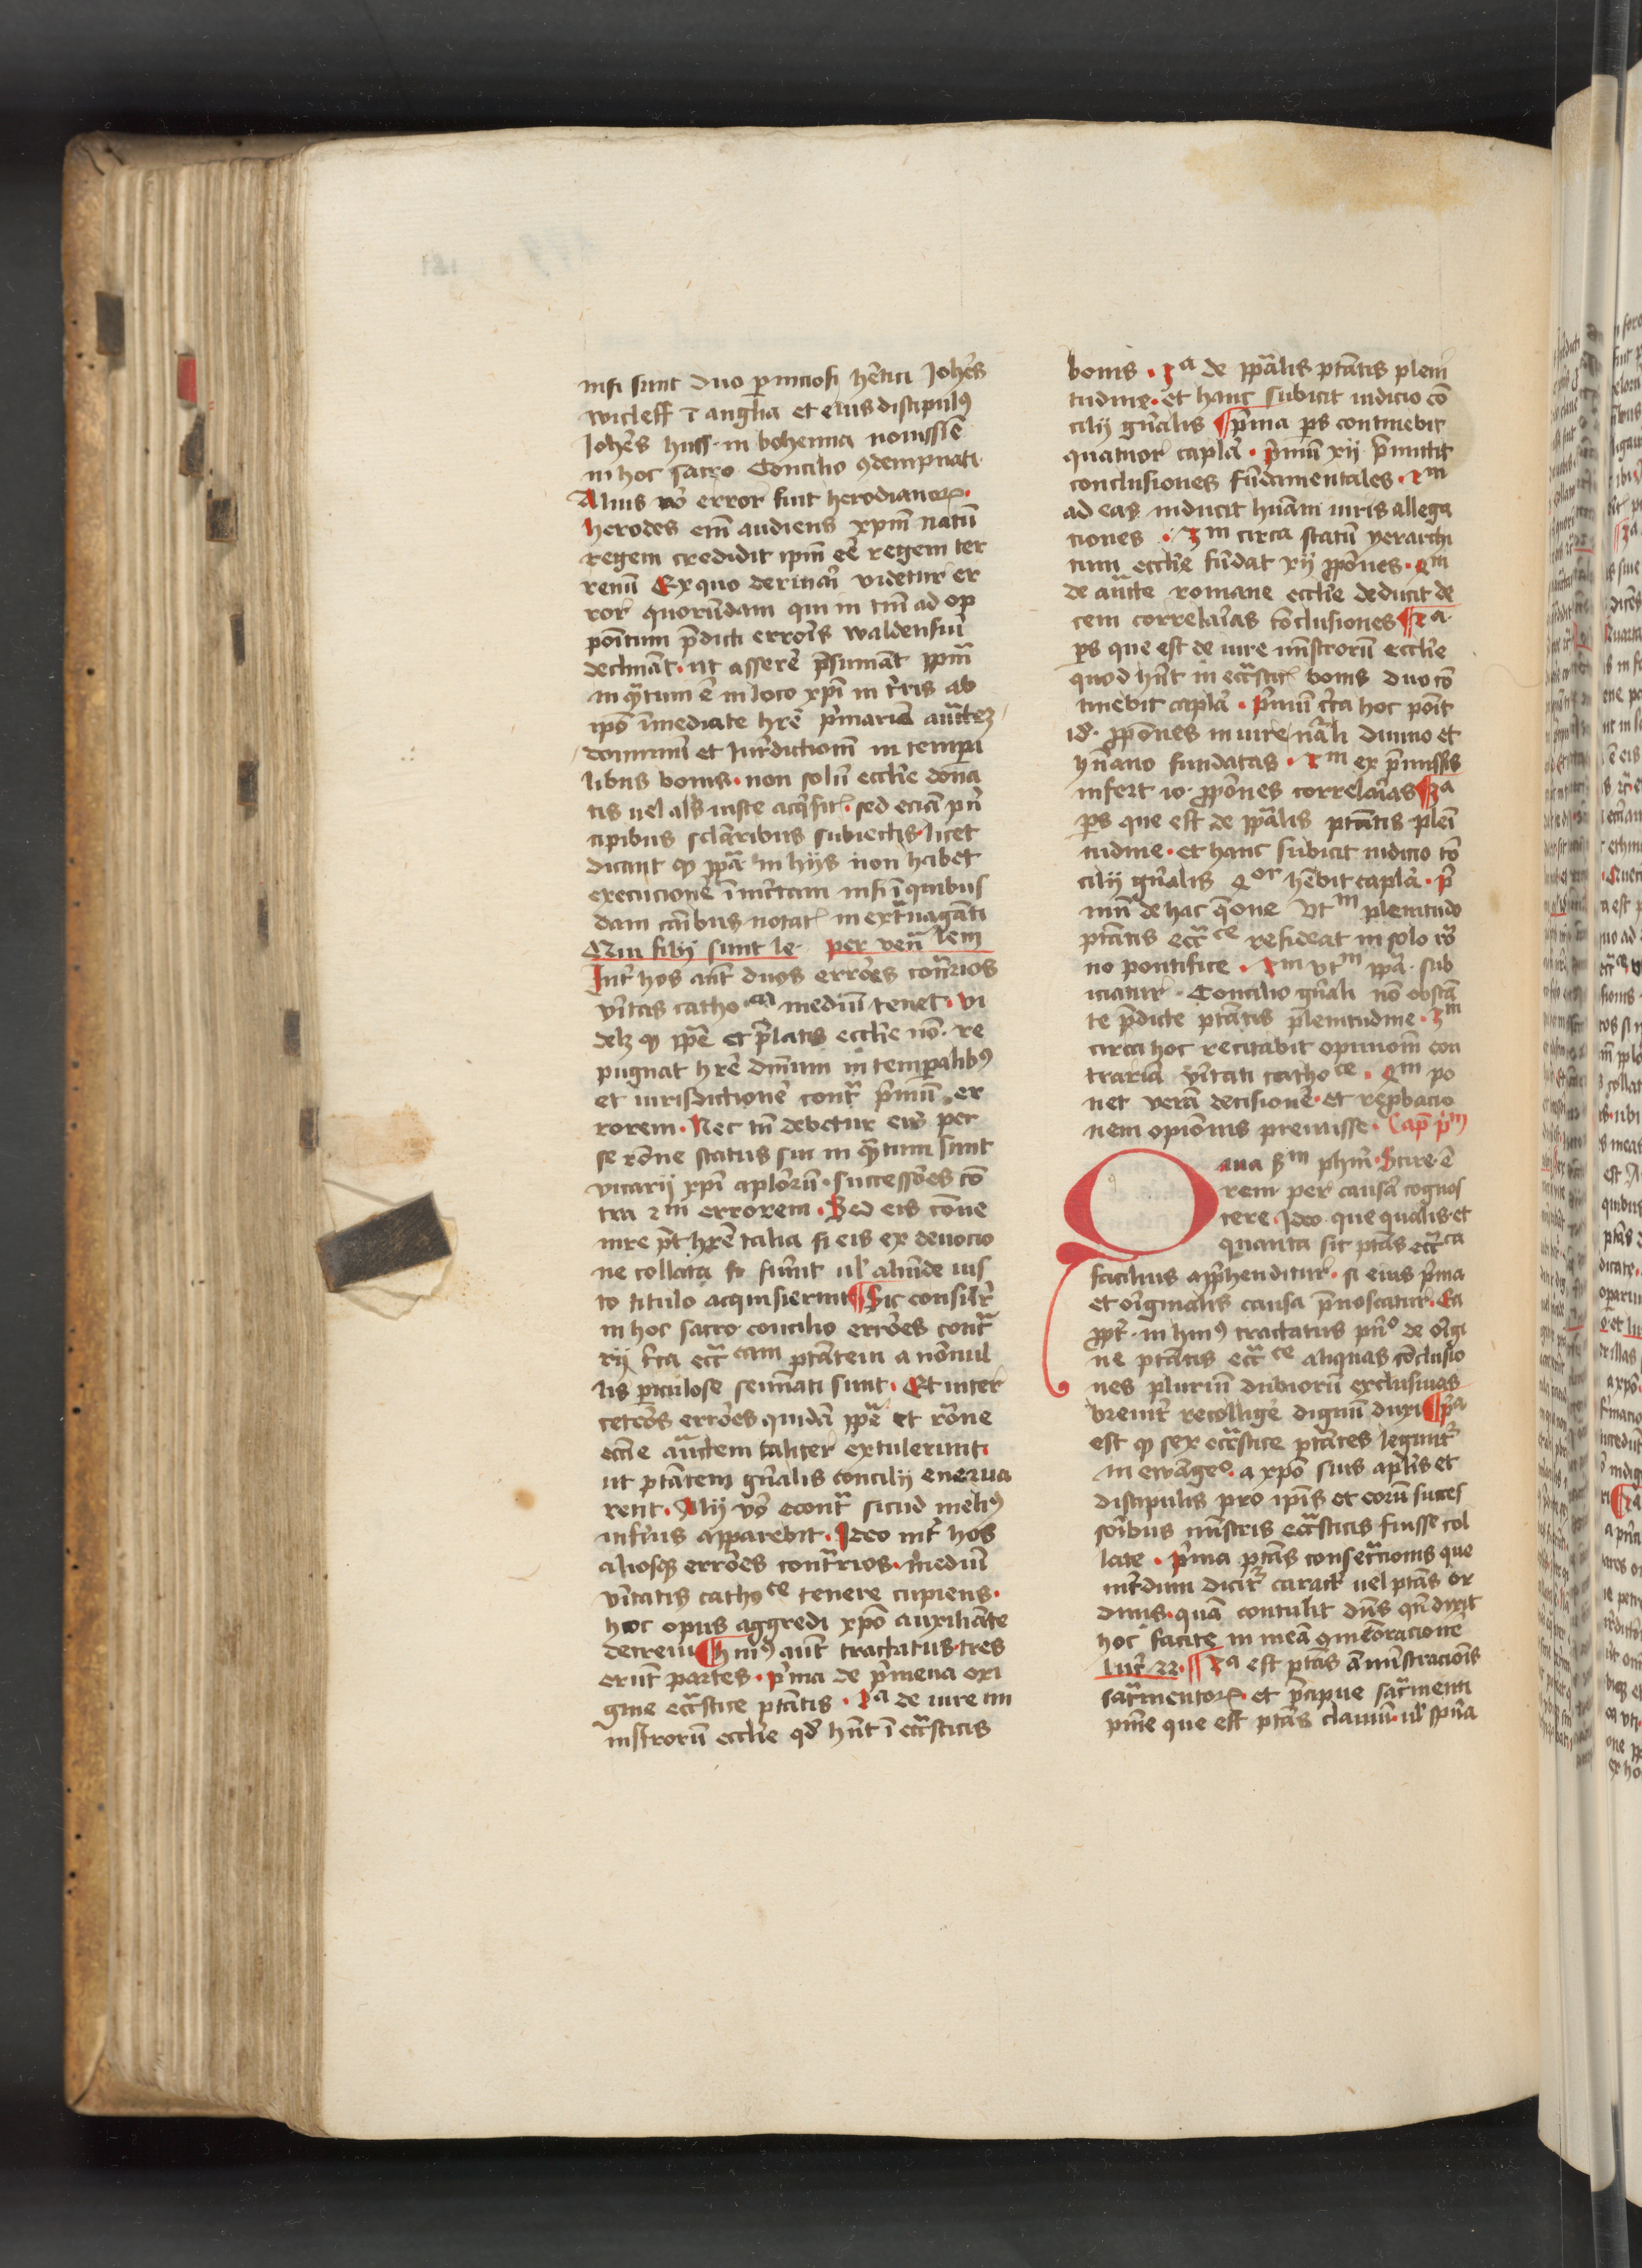 nisi sunt duo p̄niciosi hēt̄ici Joh̄es
wicleff ī anglia et eius discipulꝰ
Joh̄es huss in bohemia nouissīe
in hoc sacro Concilio ɔdempnati
Alius v̄o error fuit herodianoꝝ.
herodes em̄ audiens xp̄m natū
regem credidit ip̄m eē regem ter
renū Ex quo deriuari videtur er
ror quorūdam qui in tm̄ ad op
poitum p̄dicti erroīs waldensiū
declināt. ut asserē p̄sumāt pp̄m
in qͣtum ē in loco xp̄i in t̄ris ab
ipō īmediate hr̄e p̄mariā auctēꝫ
dominiū et iur̄dictionē in tempa
libus bonis. non solū eccl̄ie dona
tis uel al̄s iuste acq̄sit̄. sed eciā pn̄
cipibus sclaribus subiectis. licet
dicant ꝙ pp̄a in hijs non habet
execucionē īmictam nisi ī quibus
dam casibus notat̄ in ext̄uaganti
Qui filij sunt le. per ven̄lem
Int̄ hos aūt duos errores cont̄rios
v̄itas cathoᶜᵃ mediū tenet. vi
delꝫ ꝙ pp̄e et p̄latis eccl̄ie nō re
pugnat hr̄e dn̄ium in temporalibꝰ
et iurisdictionē cont̄ p̄mū er
rorem. Nec tn̄ debetur eis per
se rōne status sui in qͣtum sunt
vicarij xp̄i aplōrū. successores cō
tra 2ᵐ errorem. Sed eis cōue
nire pt̄ hr̄e talia si eis ex deuocio
ne collata fuerit ul̄ aliunde ius
to titulo acquisierunt ¶ Sic consil̄r
in hoc sacro concilio errores cont̄
rij c̄ca ecc̄ᶜᵃᵐ ptātem a nōnul
lis piculose semīati sunt. Et inter
cetēos errores quidā pp̄e et rōne
eccl̄ie auctem taliter extulerunt
ut ptātem gn̄alis concilij enerua
rent. Alij v̄o econt̄ sicud meliꝰ
inferius apparebit. Ideo int̄ hos
aliosqꝫ errores cont̄rios. mediū
v̄itatis cathoᶜᵉ tenere cupiens.
hoc opus aggredi xp̄o auxiliāte
decreui ¶ huiꝰ aut̄ tractatus tres
erūt partes. p̄ma de p̄meua ori
gine ecc̄astice ptātis. 2ᵃ de iure mi
nistrorū eccl̄ie qd̄ hn̄t ī ecc̄asticis
bonis. 3ᵃ de pp̄alis ptātis pleni
tudine. et hanc subicit iudicio cō
cilij gn̄alis ¶ p̄ma ps continebit
quatuor capl̄a. p̄mū xij p̄mittit
conclusiones fūdamentales. 2ᵐ
ad eas inducit hūam iuris allega
tiones. 3ᵐ circa statū yerarchi
cum eccl̄ie fūdat xij pp̄ones. 4ᵐ
de aucte romane eccl̄ie deducit de
cem correlarias cōclusiones ¶ 2ᵃ.
ps que est de iure mīstrorū eccl̄ie
quod hn̄t in ecc̄astic̄ bonis duo cō
tinebit capl̄a. p̄mū c̄ca hoc poīt
id. pp̄ones in iure nāli diuino et
hūano fundatas. 2ᵐ ex p̄missis
infert 10. pp̄ones correlarias ¶ 3ᵃ
ps que est de pp̄alis ptātis pleni
tudine. et hanc subicit iudicio cō
cilij gn̄alis 4ᵒʳ hēbit capl̄a. p̄
mū de hac q̄one vtᵐ plenitudo
ptātis ecc̄ᶜᵉ resideat in solo ro
no pontifice. 2ᵐ vtᵐ pp̄a sub
iciatur Concilio gn̄ali nō obstā
te p̄dicte ptātis plenitudine. 3ᵐ
circa hoc recitabit opinionē con
trariā v̄itati cathoᶜᵉ. 4ᵐ po
net verā decisionē. et rep̄bacio
nem opiōnis premisse. Cap̄ p̄ᵐ
Quia s̄ᵐ ph̄m. Scire ē
rem per causā cognos
cere. Ideo que qualis et
quanta sit ptās ecc̄ᶜᵃ
facilius app̄henditur. si eius p̄ma
et originalis causa p̄noscatur. Ea
ppt̄. in huiꝰ tractatus pn̄ᵒ de origi
ne ptātis ecc̄ᶜᵉ aliquas cōclusio
nes plurimū dubiorū exclusiuas
breuit̄ recolligē dignū duxi ¶ p̄ᵃ
est ꝙ sex ecc̄astice ptātes legunt̄
in ewāgeᵒ. a xp̄o suis apl̄is et
discipulis pro ip̄is et eorū succes
soribus mīstris ecc̄asticis fuisse col
late. p̄ma ptās consecracionis que
int̄dum dicit̄ caract̄ uel ptās or
dinis. quā contulit dn̄s qn̄ dixit
hoc facite in meā ɔmēoracionē
luc̄ 22. ¶ 2ᵃ est ptās amīstracionis
sacr̄mentoꝝ. et p̄cipue sacr̄menti
pnīe que est ptās clauiū. ul̄ sp̄ua